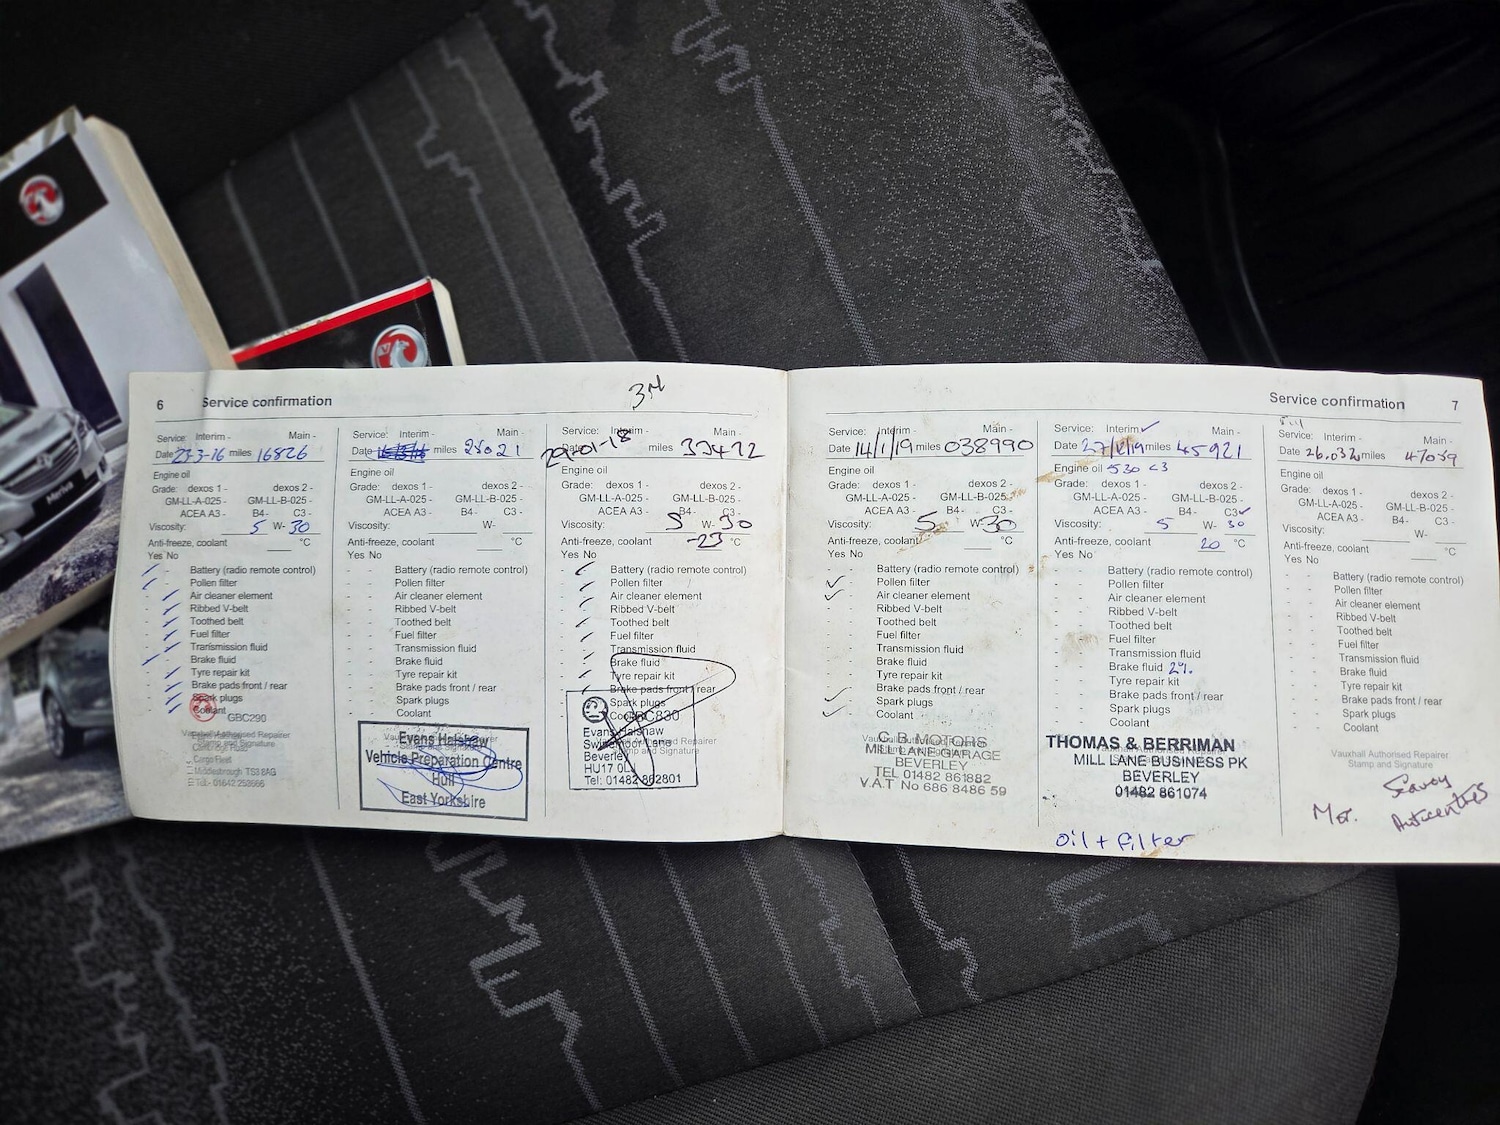 Meriva
6 Service confirmation
3M
Service: Interim - Main -
Date 23-3-16 miles 16826
Engine oil
Grade: dexos 1 - dexos 2 -
GM-LL-A-025 - GM-LL-B-025 -
ACEA A3 - B4 - C3 -
Viscosity: 5 W- 30
Anti-freeze, coolant °C
Yes No
- Battery (radio remote control)
- Pollen filter
- Air cleaner element
- Ribbed V-belt
- Toothed belt
- Fuel filter
- Transmission fluid
- Brake fluid
- Tyre repair kit
- Brake pads front / rear
- Spark plugs
- Coolant
GBC290
Vauxhall Authorised Repairer
Stamp and Signature
Cargo Fleet
Middlesbrough TS3 8AG
Service: Interim - Main -
Date miles 25021
Engine oil
Grade: dexos 1 - dexos 2 -
GM-LL-A-025 - GM-LL-B-025 -
ACEA A3 - B4 - C3 -
Viscosity: W-
Anti-freeze, coolant °C
Yes No
- - Battery (radio remote control)
- - Pollen filter
- - Air cleaner element
- - Ribbed V-belt
- - Toothed belt
- - Fuel filter
- - Transmission fluid
- - Brake fluid
- - Tyre repair kit
- - Brake pads front / rear
- - Spark plugs
- - Coolant
Evans Halshaw
Vehicle Preparation Centre
Hull
East Yorkshire
Service: Interim - Main -
Date 29-01-18 miles
Engine oil
Grade: dexos 1 - dexos 2 -
GM-LL-A-025 - GM-LL-B-025 -
ACEA A3 - B4 - C3 -
Viscosity: 5 W- 30
Anti-freeze, coolant -23 °C
Yes No
- Battery (radio remote control)
- Pollen filter
- Air cleaner element
- Ribbed V-belt
- Toothed belt
- Fuel filter
- Transmission fluid
- Brake fluid
- Tyre repair kit
- Brake pads front / rear
Spark plugs
Coolant GBC830
Evans Halshaw
Swinemoor Lane
Vauxhall Authorised Repairer
Stamp and Signature
Beverley
HU17 0LJ
Tel: 01482 862801
Service confirmation 7
Service: Interim - Main -
Date 14/1/19 miles 038990
Engine oil
Grade: dexos 1 - dexos 2 -
GM-LL-A-025 - GM-LL-B-025 -
ACEA A3 - B4 - C3 -
Viscosity: 5 W- 30
Anti-freeze, coolant °C
Yes No
- - Battery (radio remote control)
✓ - Pollen filter
✓ - Air cleaner element
- - Ribbed V-belt
- - Toothed belt
- - Fuel filter
- - Transmission fluid
- - Brake fluid
- - Tyre repair kit
- - Brake pads front / rear
✓ - Spark plugs
✓ - Coolant
C. B. MOTORS
MILL LANE GARAGE
BEVERLEY
TEL 01482 861882
V.A.T No 686 8486 59
Service: Interim ✓ Main -
Date 27/12/19 miles 45921
Engine oil 530 C3
Grade: dexos 1 - dexos 2 -
GM-LL-A-025 - GM-LL-B-025 -
ACEA A3 - B4 - C3 ✓
Viscosity: 5 W- 30
Anti-freeze, coolant 20 °C
Yes No
- - Battery (radio remote control)
- - Pollen filter
- - Air cleaner element
- - Ribbed V-belt
- - Toothed belt
- - Fuel filter
- - Transmission fluid
- - Brake fluid 2%.
- - Tyre repair kit
- - Brake pads front / rear
- - Spark plugs
- - Coolant
THOMAS & BERRIMAN
MILL LANE BUSINESS PK
BEVERLEY
01482 861074
oil + filter
Service: Interim - Main -
Date miles 47059
Engine oil
Grade: dexos 1 - dexos 2 -
GM-LL-A-025 - GM-LL-B-025 -
ACEA A3 - B4 - C3 -
Viscosity: W-
Anti-freeze, coolant °C
Yes No
- - Battery (radio remote control)
- - Pollen filter
- - Air cleaner element
- - Ribbed V-belt
- - Toothed belt
- - Fuel filter
- - Transmission fluid
- - Brake fluid
- - Tyre repair kit
- - Brake pads front / rear
- - Spark plugs
- - Coolant
Vauxhall Authorised Repairer
Stamp and Signature
Autocentres